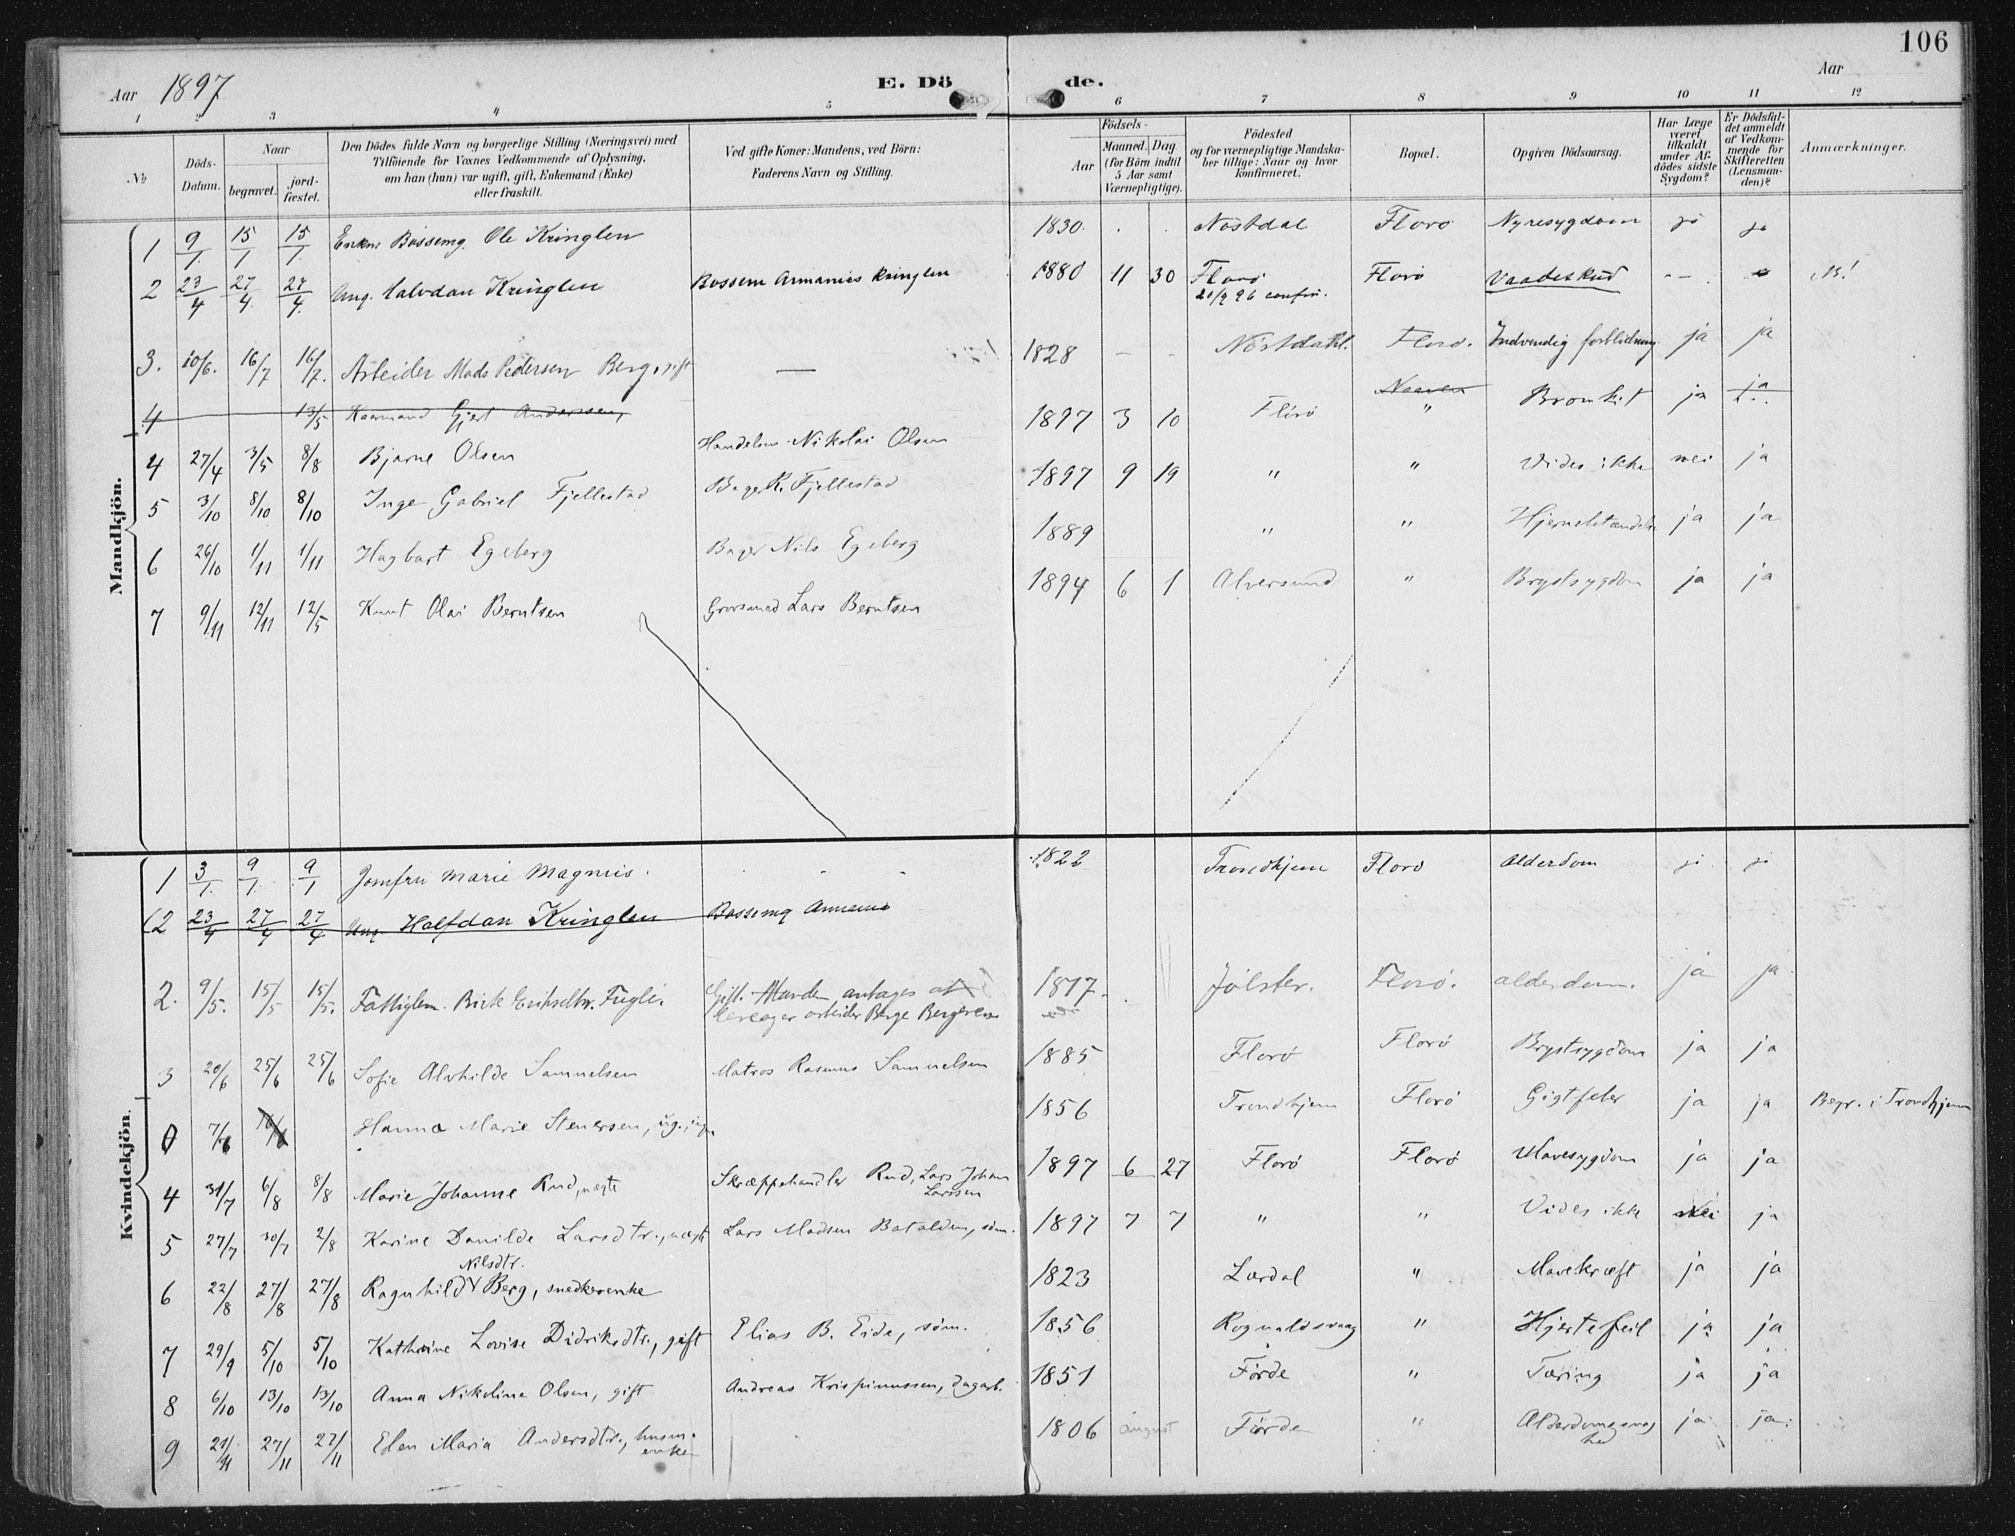 106
Aar 1897 E. Dö de. Aar
1 2 3 4 5 6 7 8 9 10 11 12
№ Döds-Datum. Naar begravet. jordfæstet. Den Dödes fulde Navn og borgerlige Stilling (Næringsvei) med Tilföiende for Voxnes Vedkommende af Oplysning, om han (hun) var ugift, gift, Enkemand (Enke) eller fraskilt. Ved gifte Koner: Mandens, ved Börn: Faderens Navn og Stilling. Födsels- Aar Maaned. Dag (for Börn indtil 5 Aar samt Værnepligtige). Födested og for værnepligtige Mandskaber tillige: Naar og hvor Konfirmeret. Bopæl. Opgiven Dödsaarsag. Har Læge været tilkaldt under Afdödes sidste Sygdom? Er Dödsfaldet anmeldt af Vedkommende for Skifteretten (Lensmanden)? Anmærkninger.
Mandkjön.
1 9/1. 15/1 15/1. Enkm. Bössemg. Ole Kringlen 1830. Nöstdal Florö Nyresygdom ja ja
2 23/4 27/4. 27/4. Ung. Halvdan Kringlen Bossem Ammanies Kringlen 1880 11 30 Florö Florö Vaadeskud - NB!
20/9 96 confir.
3. 10/6. 16/7 16/7. Arbeider Mads Pedersen Berg, gift — 1828 - - Nöstdahl. Florö. Indvendig forblødning ja ja
4 13/5 Kaarmand Gjert Anderssen,
4 27/4 3/5 8/8 Bjarne Olsen Handelsm. Nikolai Olsen 1897 3 10 Florö " Bronkit ja ja
5 3/10 8/10 8/10 Inge Gabriel Fjellestad Bager K. Fjellestad 1897 9 19 " " Vides ikke nei ja
6 26/10 1/11 1/11 Hagbart Egeberg Bager Nils Egeberg 1889 " " Hjernebetændelse ja ja
7 9/11 12/11 12/5 Knut Olai Berntsen Grovsmed Lars Berntsen 1894 6 1 Alversund " Brystsygdom ja ja
Kvindekjön.
1 3/1. 9/1. 9/1 Jomfru Marie Magnus. 1822 Trondhjem Florö Alderdom ja ja
(2 23/4 27/4 27/4 Ung. Halfdan Kringlen Bossemg Ammanie
2. 9/5. 15/5 15/5. Fattiglem. Brite Eriksdtr. Fugle. Gift. Manden antages at 1817. Jölster. Florö. alderdom. ja ja
være arbeider Berge Bergersen
3 20/6 25/6 25/6 Sofie Alvhilde Samuelsen Matros Rasmus Samuelsen 1885 Florö Florö Brystsygdom ja ja
0 7/6 Hanna Marie Stenersen, ug. 1856 Trondhjem Florö Gigtfeber ja ja Begr. i Trondhjem
4 31/7 6/8 8/8 Marie Johanne Rud, uægte Skræppehandler Rud, Lars Johan Larssen 1897 6 27 Florö Florö Mavesygdom ja ja
5 27/7 30/7 2/8 Karine Danilde Larsdtr., uægte Lars Madsen Batalden, søm. 1897 7 7 " " Vides ikke nei ja
6 22/8 27/8 27/8 Ragnhild Nilsdtr. Berg, snedkerenke 1823 Lærdal " Mavekræft ja ja
7 29/9 5/10 5/10 Kathrine Lovise Didriksdtr., gift Elias B. Eide, søm. 1856 Rognaldsvaag " Hjertefeil ja ja
8 6/10 13/10 13/10 Anna Nikoline Olsen, gift Andreas Krispinussen, dagarb. 1851 Førde " Tæring ja ja
9 21/11 27/11 27/11 Elen Maria Andersdtr., husm.enke 1806 august Førde " Alderdomssvaghed ja ja